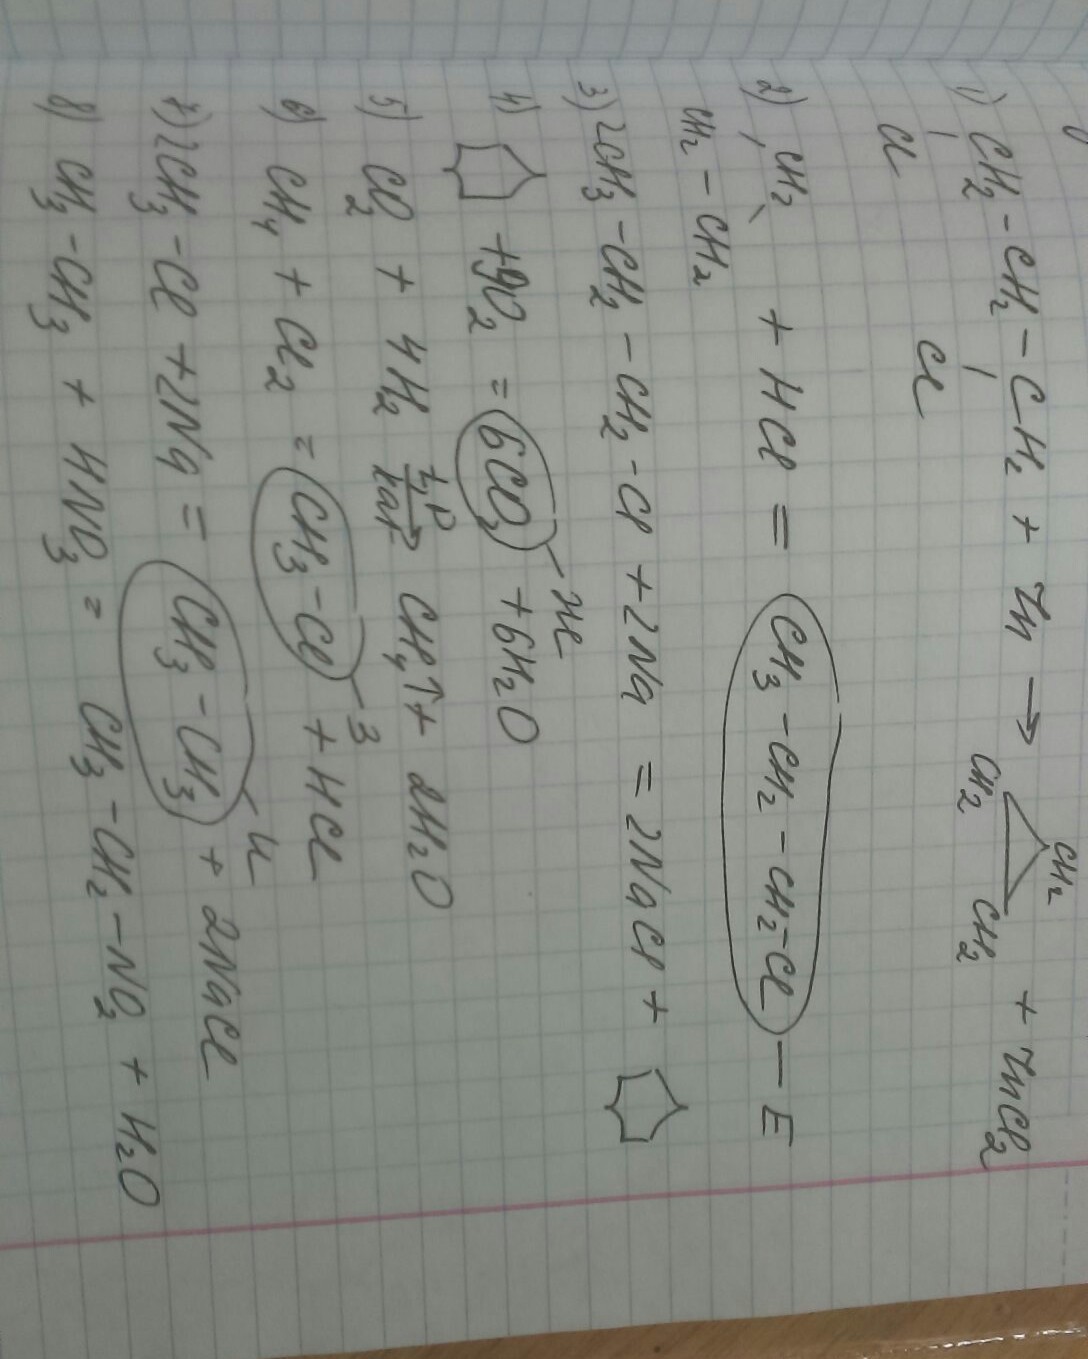 1) CH₂ - CH₂ - CH₂ + Zn → CH₂ CH₂ CH₂ + ZnCl₂
Cl Cl
2) CH₂ + HCl = CH₃ - CH₂ - CH₂ - Cl — E
CH₂ - CH₂
3) 2CH₃ - CH₂ - CH₂ - Cl + 2Na = 2NaCl +
4) + 9O₂ = 6CO₂ + 6H₂O
Ж
5) CO₂ + 4H₂ t, p кат → CH₄↑ + 2H₂O
6) CH₄ + Cl₂ = CH₃ - Cl + HCl
З
7) 2CH₃ - Cl + 2Na = CH₃ - CH₃ + 2NaCl
И
8) CH₃ - CH₃ + HNO₃ = CH₃ - CH₂ - NO₂ + H₂O